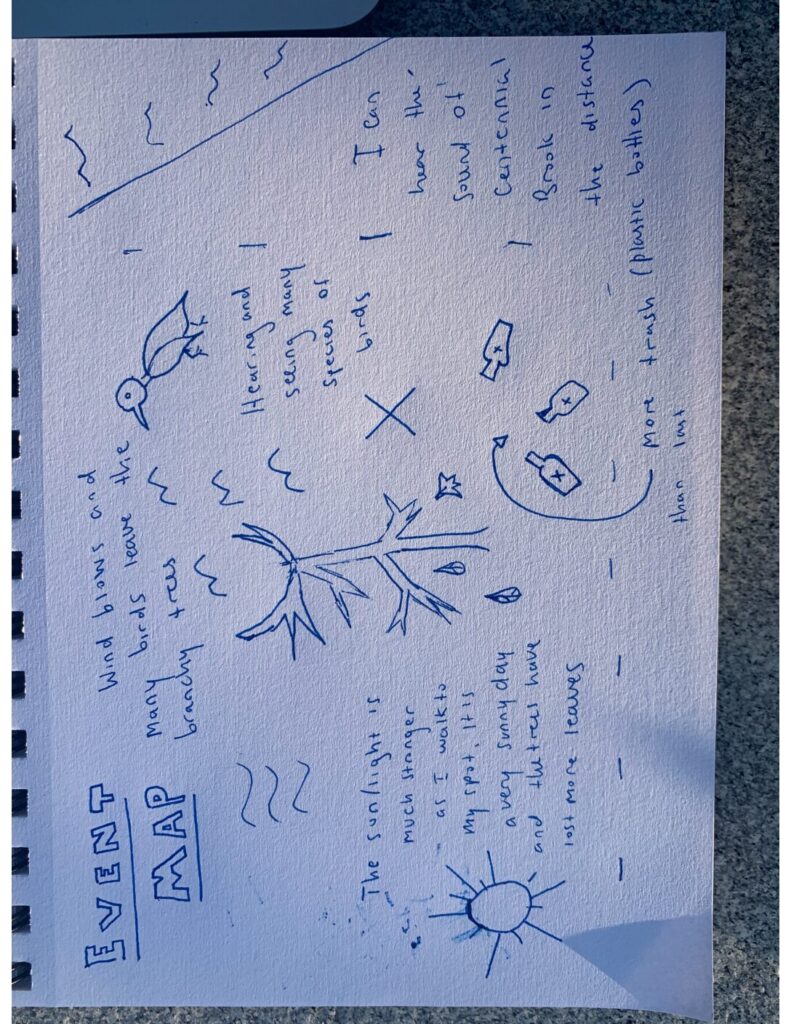 EVENT
MAP
Wind blows and
birds leave the
many
branchy trees
Hearing and
seeing many
species of
birds
I can
hear the
sound of
Centennial
Brook in
the distance
The sunlight is
much stronger
as I walk to
my spot. It is
a very sunny day
and the trees have
lost more leaves
More trash (plastic bottles)
than last